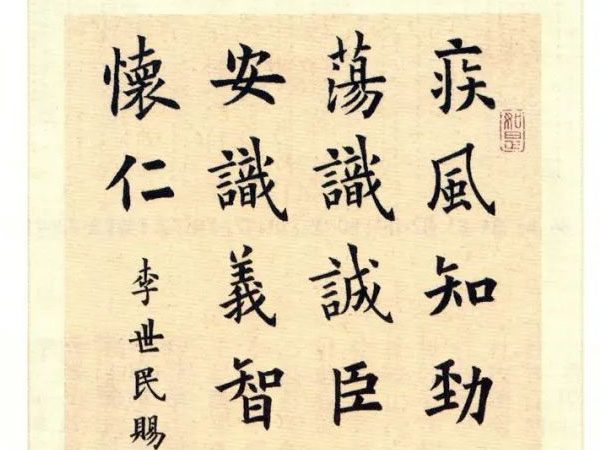 如是
疾風知勁
蕩識誠臣
安識義智
懷仁
李世民賜